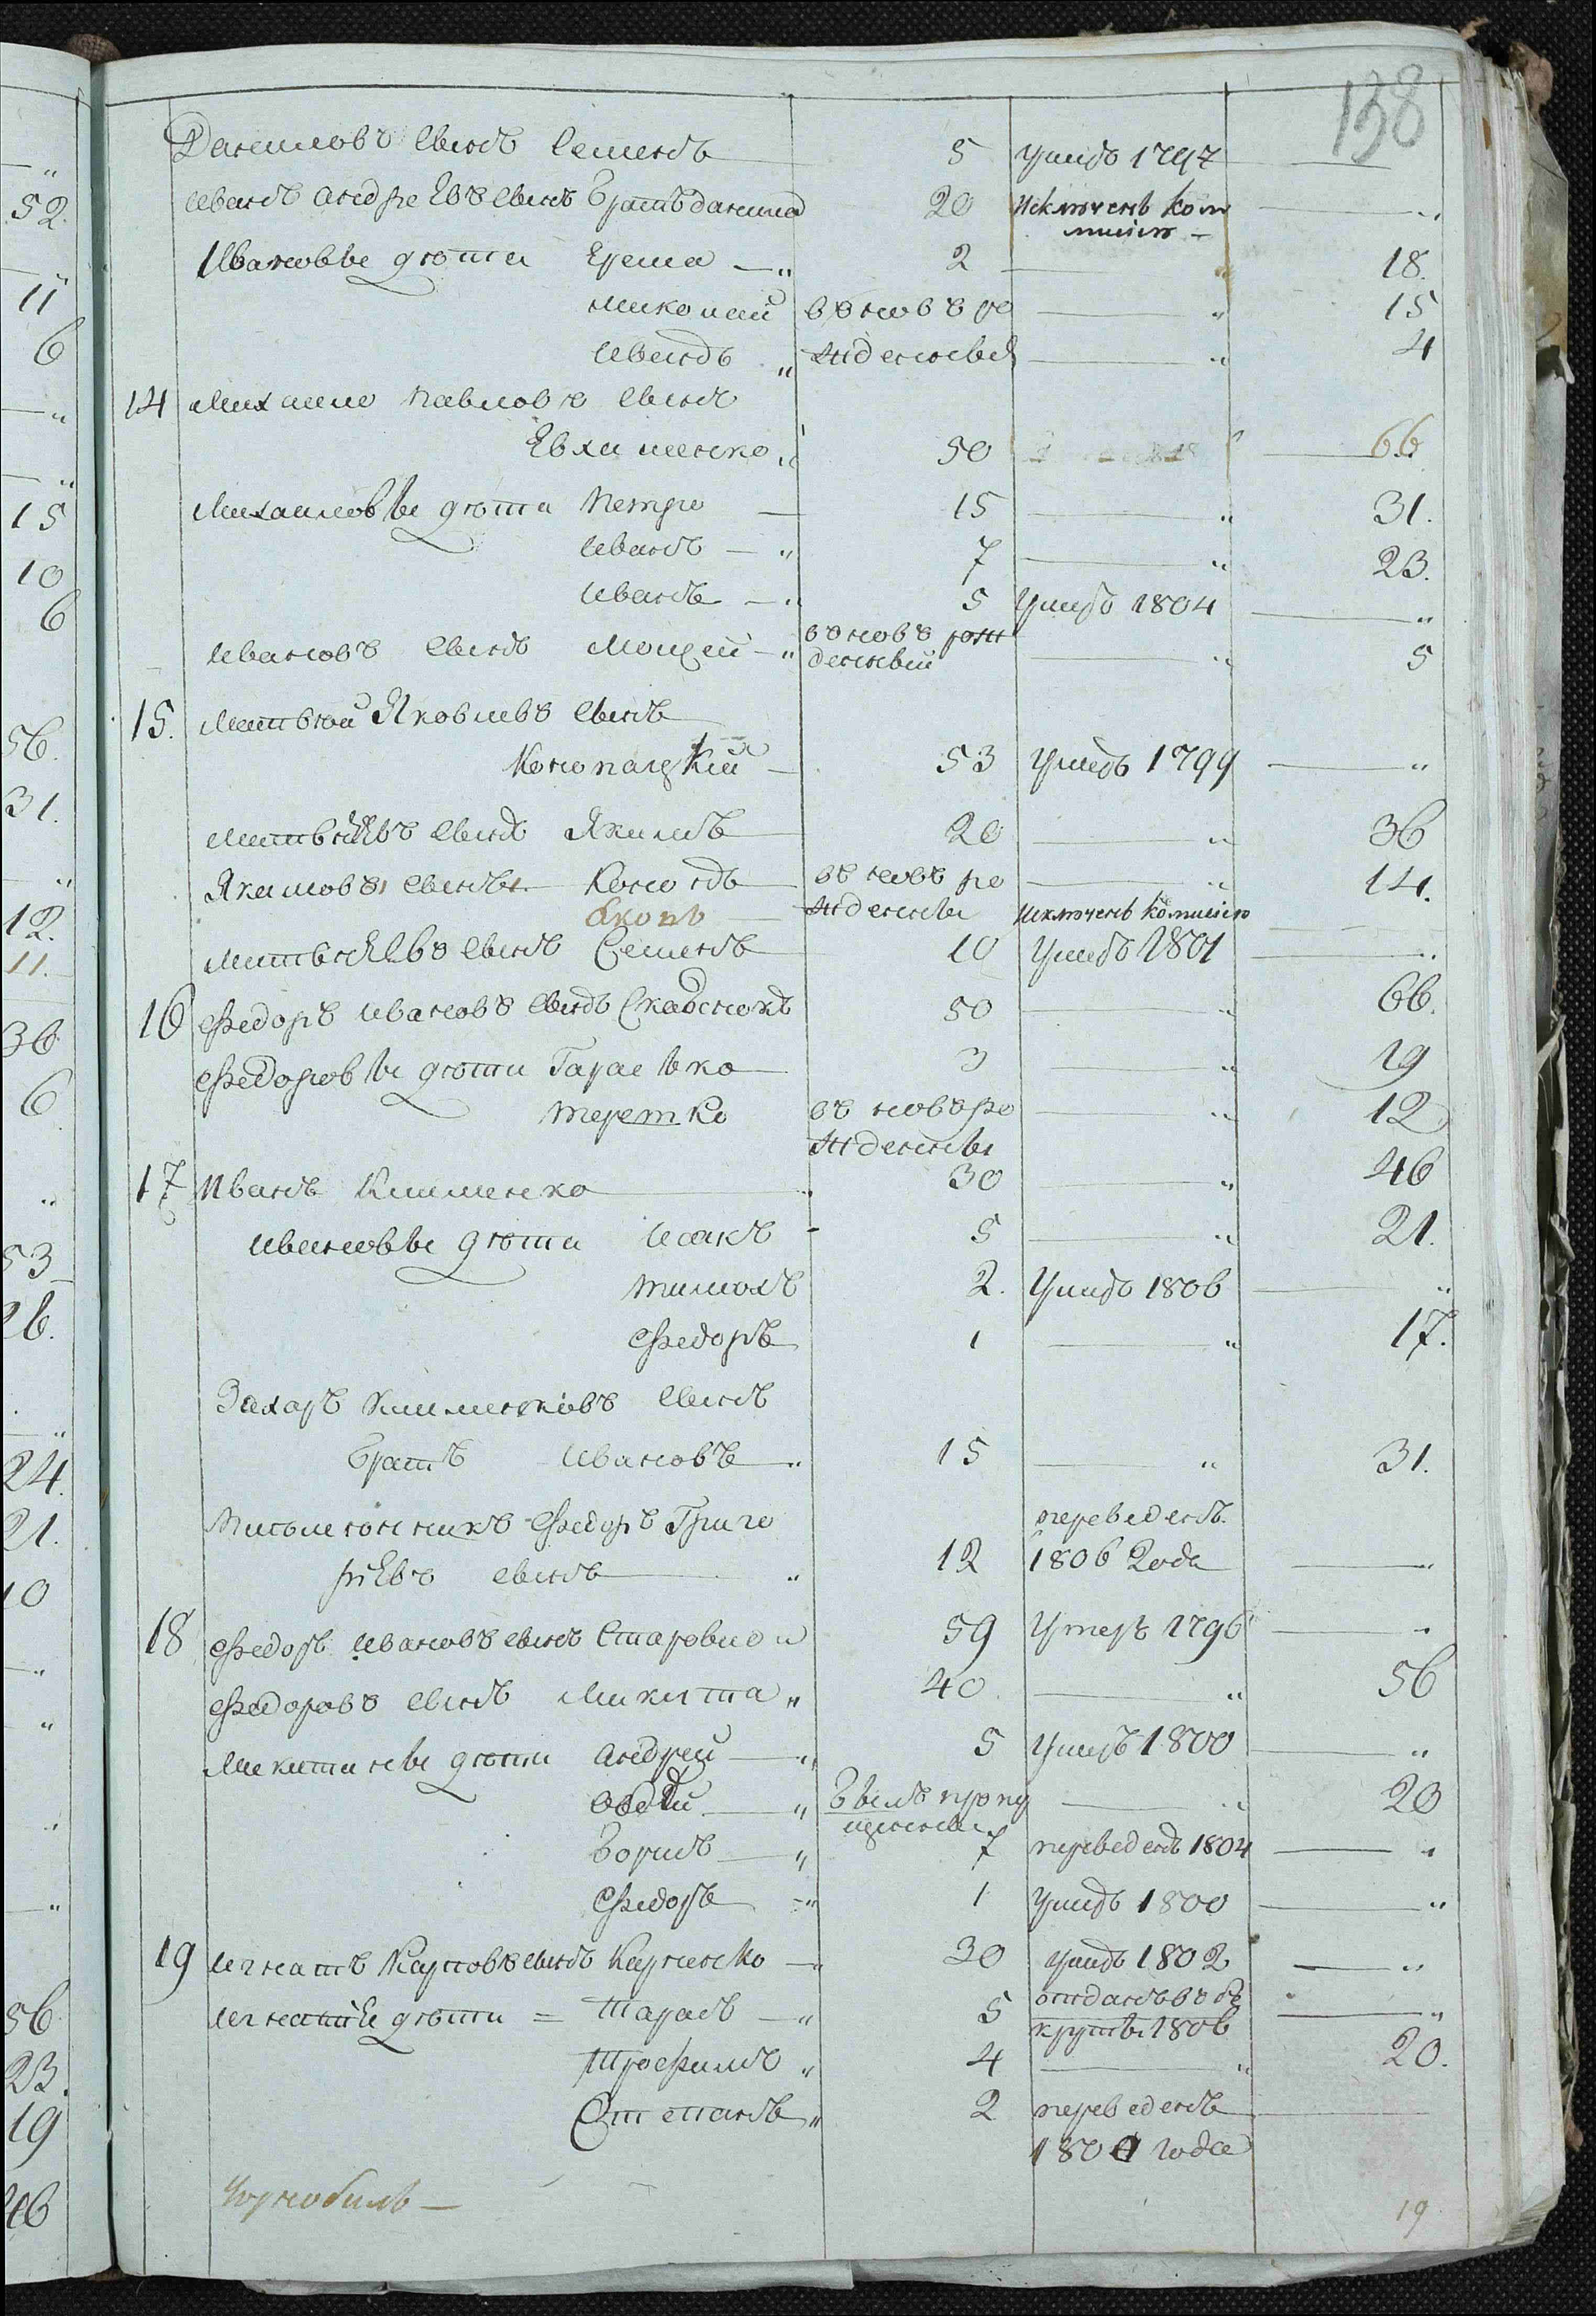 138
Даниловъ сынъ Семенъ 5 умеръ 1797 —
Иванъ Андреевъ сынъ братъ данила 20 исключенъ Ком —"
мисiею —
Ивановы дѣти Ерема —" 2 —" 18.
Николай вновь ро —" 15
Иванъ " жденный —" 4
14 Михаило Павловъ сынъ
Евхименко " 50 66
Михаиловы дѣти Петро — 15 —" 31.
Иванъ —" 7 —" 23.
Иванъ —" 5 умеръ 1804 —"
вновь рож
Ивановъ сынъ Моисей —" денный —" 5
15. Матвѣй Яковлевъ сынъ
Конопацкiй — 53 умеръ 1799 —"
Матвѣевъ сынъ Якимъ 20 —" 36
Якимовы сыны Кононъ вновь ро —" 14.
Яковъ — жденны исключенъ комисiею
Матвѣевъ сынъ Семенъ 10 умеръ 1801 —"
16 Федоръ Ивановъ сынъ 50 —" 66.
Федоровы дѣти Гарасько 3 —" 19
терешко вновь ро —" 12
жденны
17 Иванъ Клименко 30 —" 46
Ивановы дѣти Исакъ - 5 —" 21.
тимохъ 2. умеръ 1806 —"
Федоръ 1 —" 17.
Захаръ Клименковъ сынъ
братъ Ивановъ " 15 —" 31.
переведенъ
Федоръ Григо
рiевъ сынъ " 12 1806 года —"
18 Федоръ Ивановъ сынъ 59 умеръ 1796 —"
Федоровъ сынъ Микита " 40 —" 56
Микитины дѣти андрей —" 5 умеръ 1800 —"
Овдiй —" былъ пропу —" 20
щенный
Борисъ —" 7 переведенъ 1804 —"
Федоръ —" 1 умеръ 1800 —"
19 Игнатъ Карповъ сынъ Карпенко —" 30 умеръ 1802 —"
Игнатiвы дѣти = Тарасъ —" 5 отданъ въ рѣ —"
круты 1806
Трофимъ " 4 —" 20.
Степанъ " 2 переведенъ —
года
Чорнобиль — 19
52.
11
6
15
10
6
56.
31.
12.
11.
36
6
53
26.
24.
21.
10
56
23.
19
46